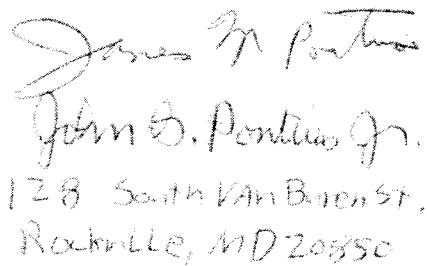 James M Pontius
John G. Pontius Jr.
128 South Van Buren St.
Rockville, MD 20850